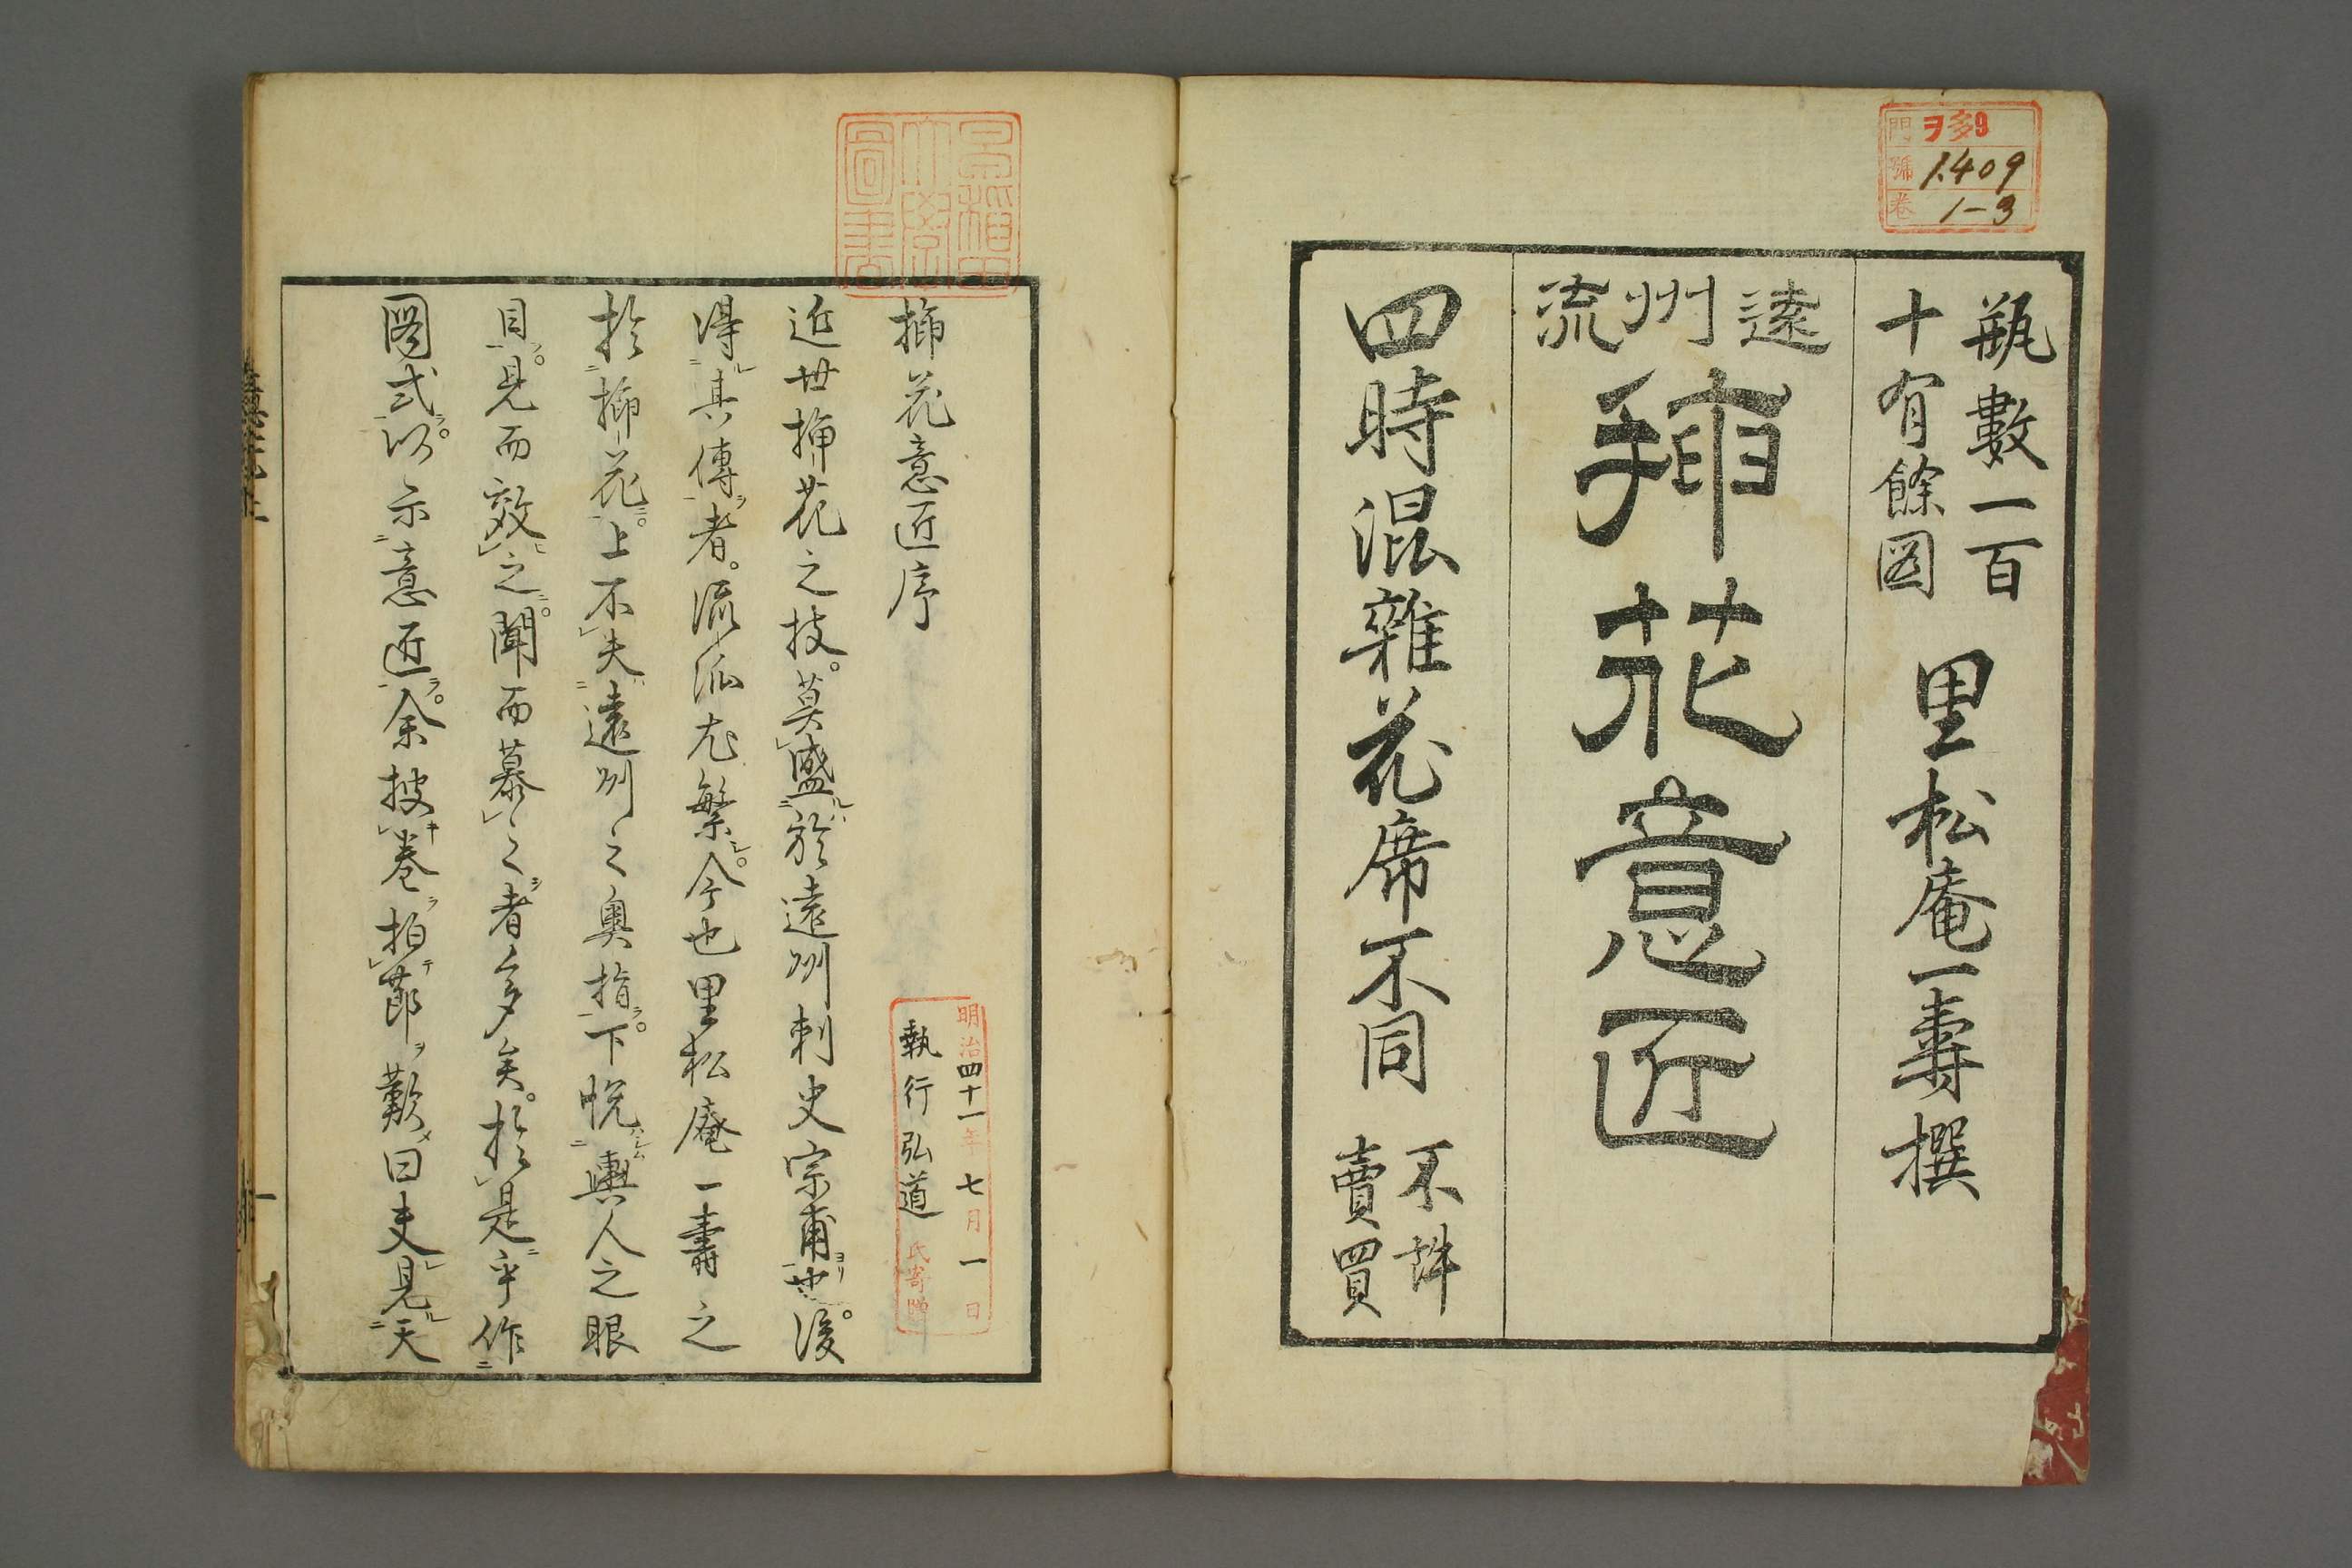 ヲ多9
門
號 1409
卷 1-3
瓶數一百
十有餘図
里松庵一壽撰
遠州流
挿花意匠
四時混雜花席不同
不許
賣買
早稲田
大學
圖書
挿花意匠序
明治四十一年七月一日
執行弘道氏寄贈
近世挿花之技。莫盛於遠州刺史宗甫也。後
得其傳者。流派尤繁。今也里松庵一壽之
於挿花。上不失遠州之奥指。下悦輿人之眼
目。見而效之。聞而慕之者多矣。於是乎作
圖式。以示意匠。余披巻拍節歎曰夫見天
一